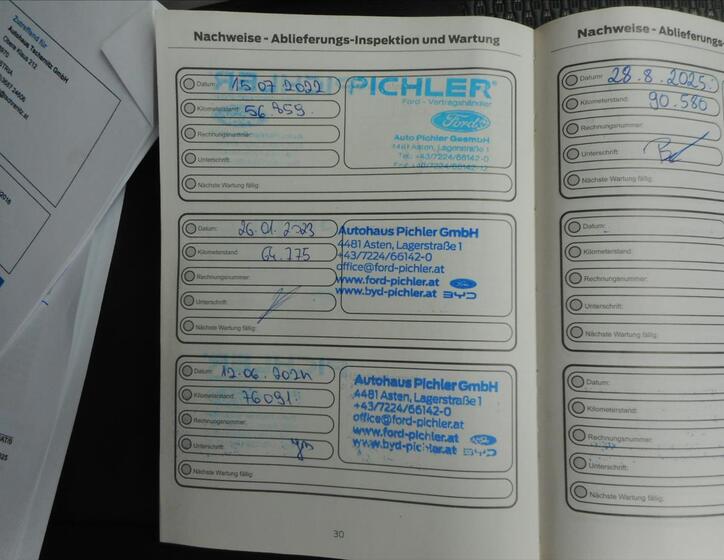 Zutreffend für
Autohaus Tschernitz GmbH
Nachweise - Ablieferungs-Inspektion und Wartung
Datum: 15.07.2022
Kilometerstand: 56.859.
Rechnungsnummer:
Unterschrift:
Nächste Wartung fällig:
PICHLER
Ford - Vertragshändler
Ford
Auto Pichler GesmbH
4481 Asten, Lagerstraße 1
Tel.: +43/7224/66142-0
Datum: 26.01.2023
Kilometerstand: 64.775
Rechnungsnummer:
Unterschrift:
Nächste Wartung fällig:
Autohaus Pichler GmbH
4481 Asten, Lagerstraße 1
+43/7224/66142-0
office@ford-pichler.at
www.ford-pichler.at
www.byd-pichler.at BYD
Datum: 12.06.2024
Kilometerstand: 76091
Rechnungsnummer:
Unterschrift:
Nächste Wartung fällig:
Autohaus Pichler GmbH
4481 Asten, Lagerstraße 1
+43/7224/66142-0
office@ford-pichler.at
www.ford-pichler.at
www.byd-pichler.at BYD
30
Nachweise - Ablieferungs-
Datum: 28.8.2025
Kilometerstand: 90.580
Rechnungsnummer:
Unterschrift:
Nächste Wartung fällig:
Datum:
Kilometerstand:
Rechnungsnummer:
Unterschrift:
Nächste Wartung fällig:
Datum:
Kilometerstand:
Rechnungsnummer:
Unterschrift:
Nächste Wartung fällig: